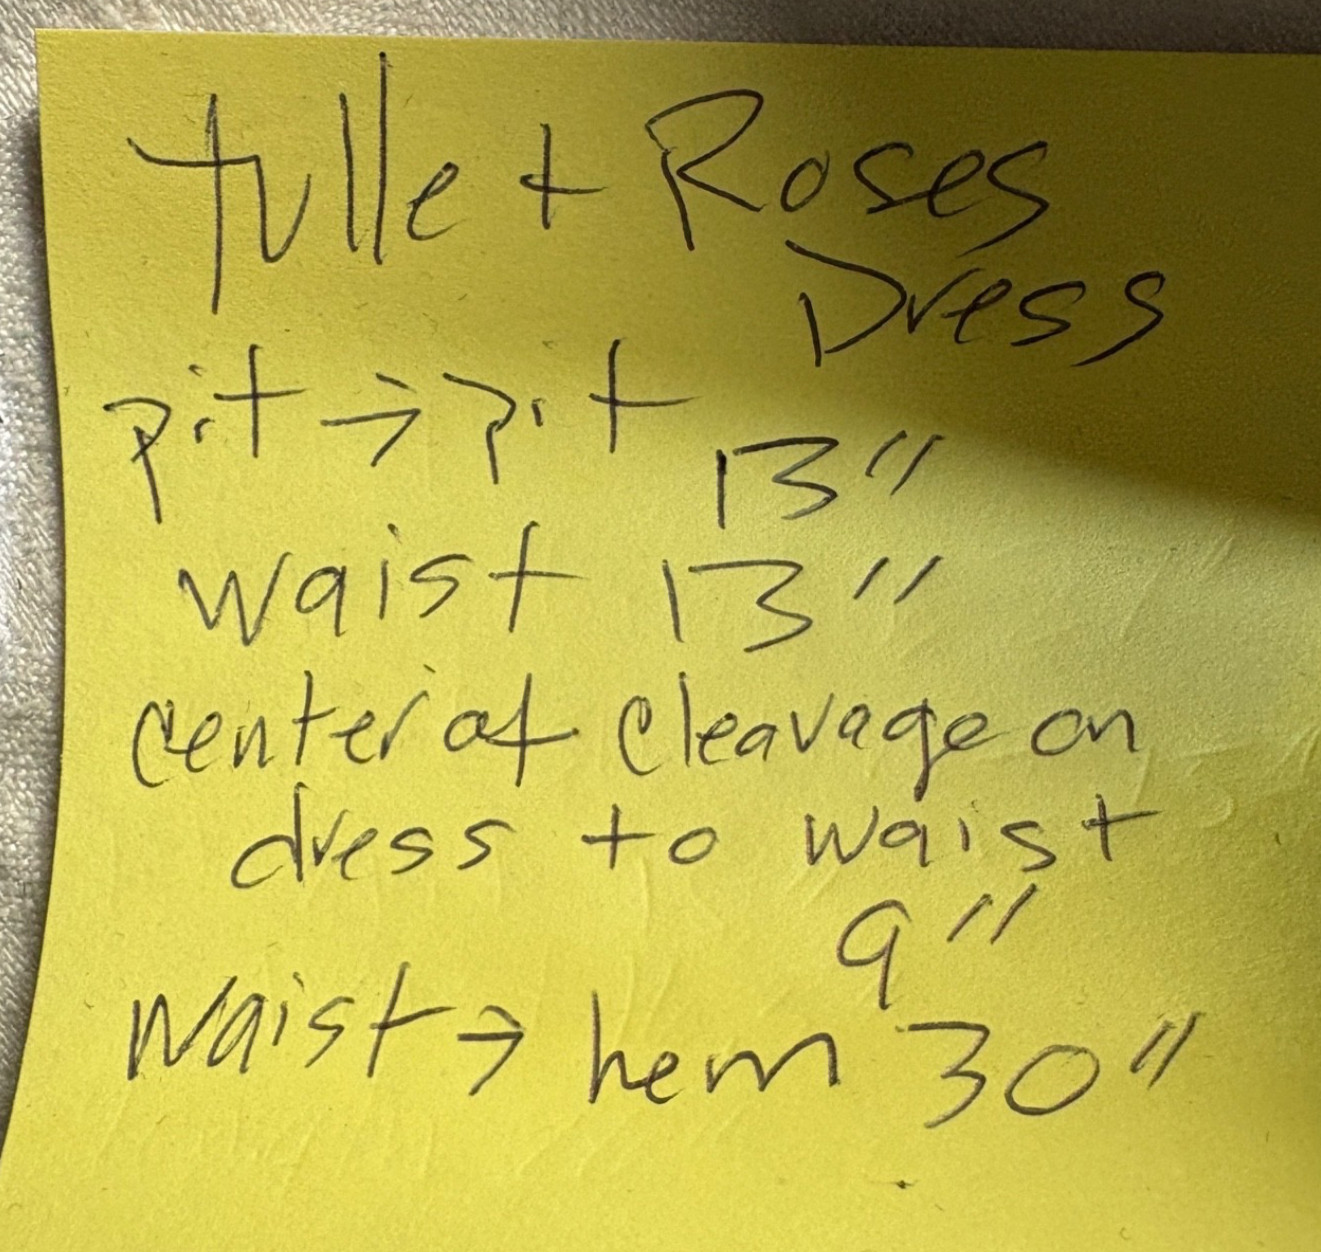 tulle + Roses
Dress
pit → pit
13"
waist 13"
center of cleavage on
dress to waist
9"
Waist → hem 30"